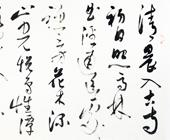 清晨入古寺
初日照高林
曲徑通幽處
禪房花木深
山光悅鳥性潭